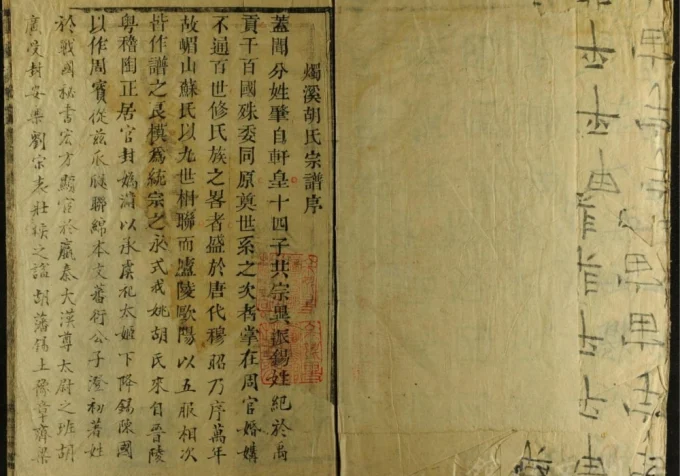 燭溪胡氏宗譜序
蓋聞分姓肇自軒皇十四子共宗異派錫姓紀於禹
貢千百國殊委同原奠世系之次者掌在周官婚媾
不通百世修氏族之畧者盛於唐代穆昭乃序萬年
故嵋山蘇氏以九世相聯而廬陵歐陽以五服相次
皆作譜之良模為統宗之永式我姚胡氏來自晉陵
粤稽陶正居官封媯滿以承虞祀太姬下降錫陳國
以作周賓從茲瓜瓞聯綿本支蕃衍公子澄初著姓
於戰國秘書宏才顯宦於嬴秦大漢尊太尉之班胡
廣受封安樂劉宗表壯侯之謚胡藩錫土豫章齊梁